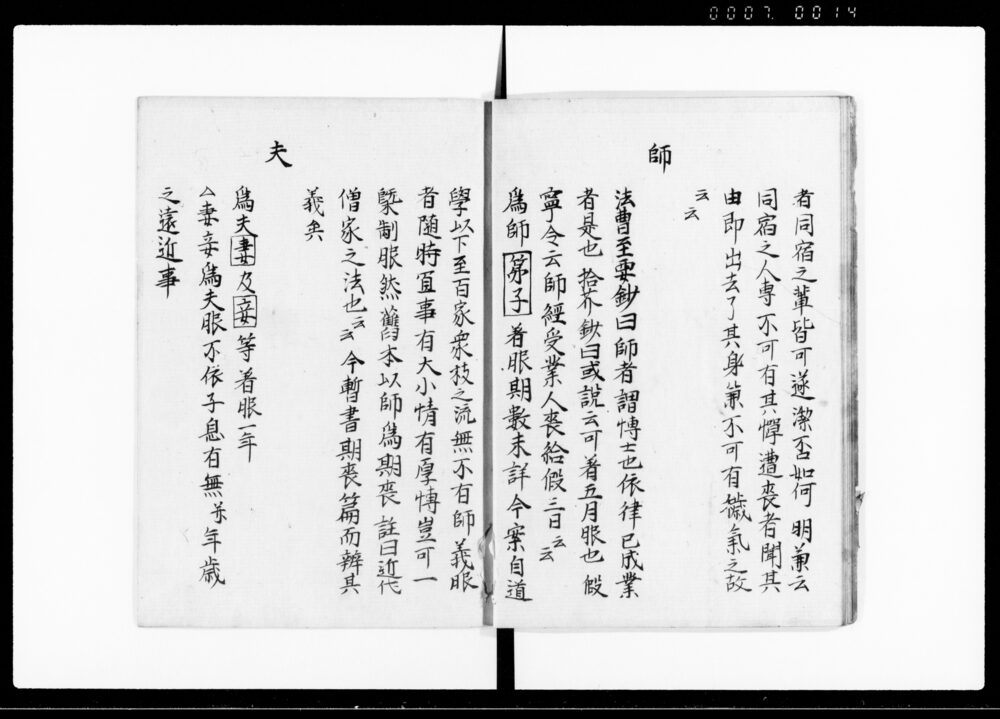 0007 0014
者同宿之輩皆可遂潔否如何明兼云
同宿之人専不可有其憚遭喪者聞其
由即出去了其身兼不可有穢氣之故
云云
師
法曹至要鈔曰師者謂博士也依律已成業
者是也拾芥鈔曰或説云可着五月服也假
寧令云師經受業人喪給假三日云云
爲師弟子着服期數未詳今案自道
學以下至百家衆技之流無不有師義服
者随時宜事有大小情有厚慱豈可一
槩制服然舊本以師爲期喪註曰近代
僧家之法也云云今暫書期喪篇而辨其
義矣
夫
爲夫妻及妾等着服一年
△妻妾爲夫服不依子息有無并年歳
之遠近事